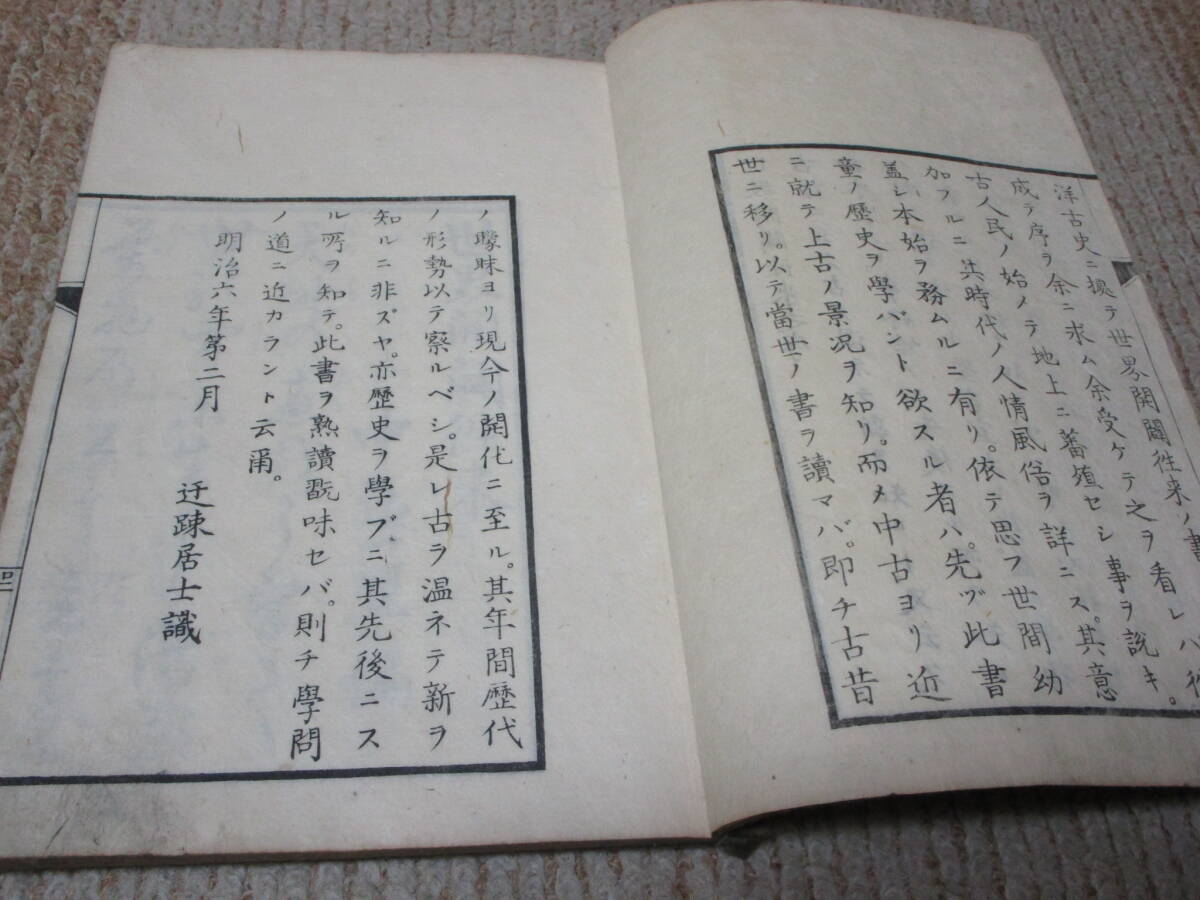 洋古史ニ據テ世界開闢徃来ノ書
成テ序ヲ余ニ求ム余受ケテ之ヲ看レハ
古人民ノ始メテ地上ニ蕃殖セシ事ヲ説キ。
加フルニ其時代ノ人情風俗ヲ詳ニス。其意
蓋シ本始ヲ務ムルニ有リ。依テ思フ世間幼
童ノ歴史ヲ學バント欲スル者ハ。先ヅ此書
ニ就テ上古ノ景况ヲ知リ。而メ中古ヨリ近
世ニ移リ。以テ當世ノ書ヲ讀マバ。即チ古昔
ノ矇昧ヨリ現今ノ開化ニ至ル。其年間歴代
ノ形勢以テ察ルベシ。是レ古ヲ温ネテ新ヲ
知ルニ非ズヤ。亦歴史ヲ學ブニ其先後ニス
ル所ヲ知テ。此書ヲ熟讀翫味セバ。則チ學問
ノ道ニ近カラント云爾。
明治六年第二月
迂疎居士識
四